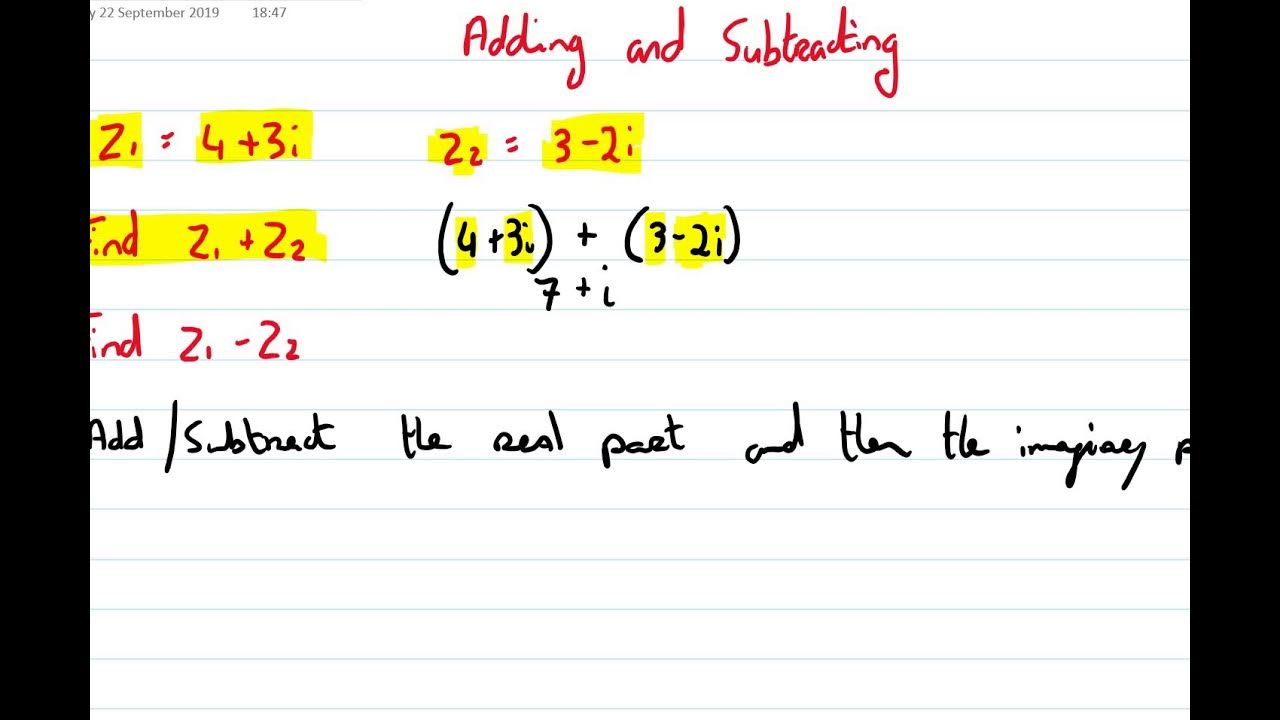 y 22 September 2019 18:47
Adding and Subtracting
Z₁ = 4+3i Z₂ = 3-2i
Find Z₁ + Z₂ (4+3i) + (3-2i)
7 + i
Find Z₁ - Z₂
Add / Subtract the real part and then the imaginary p